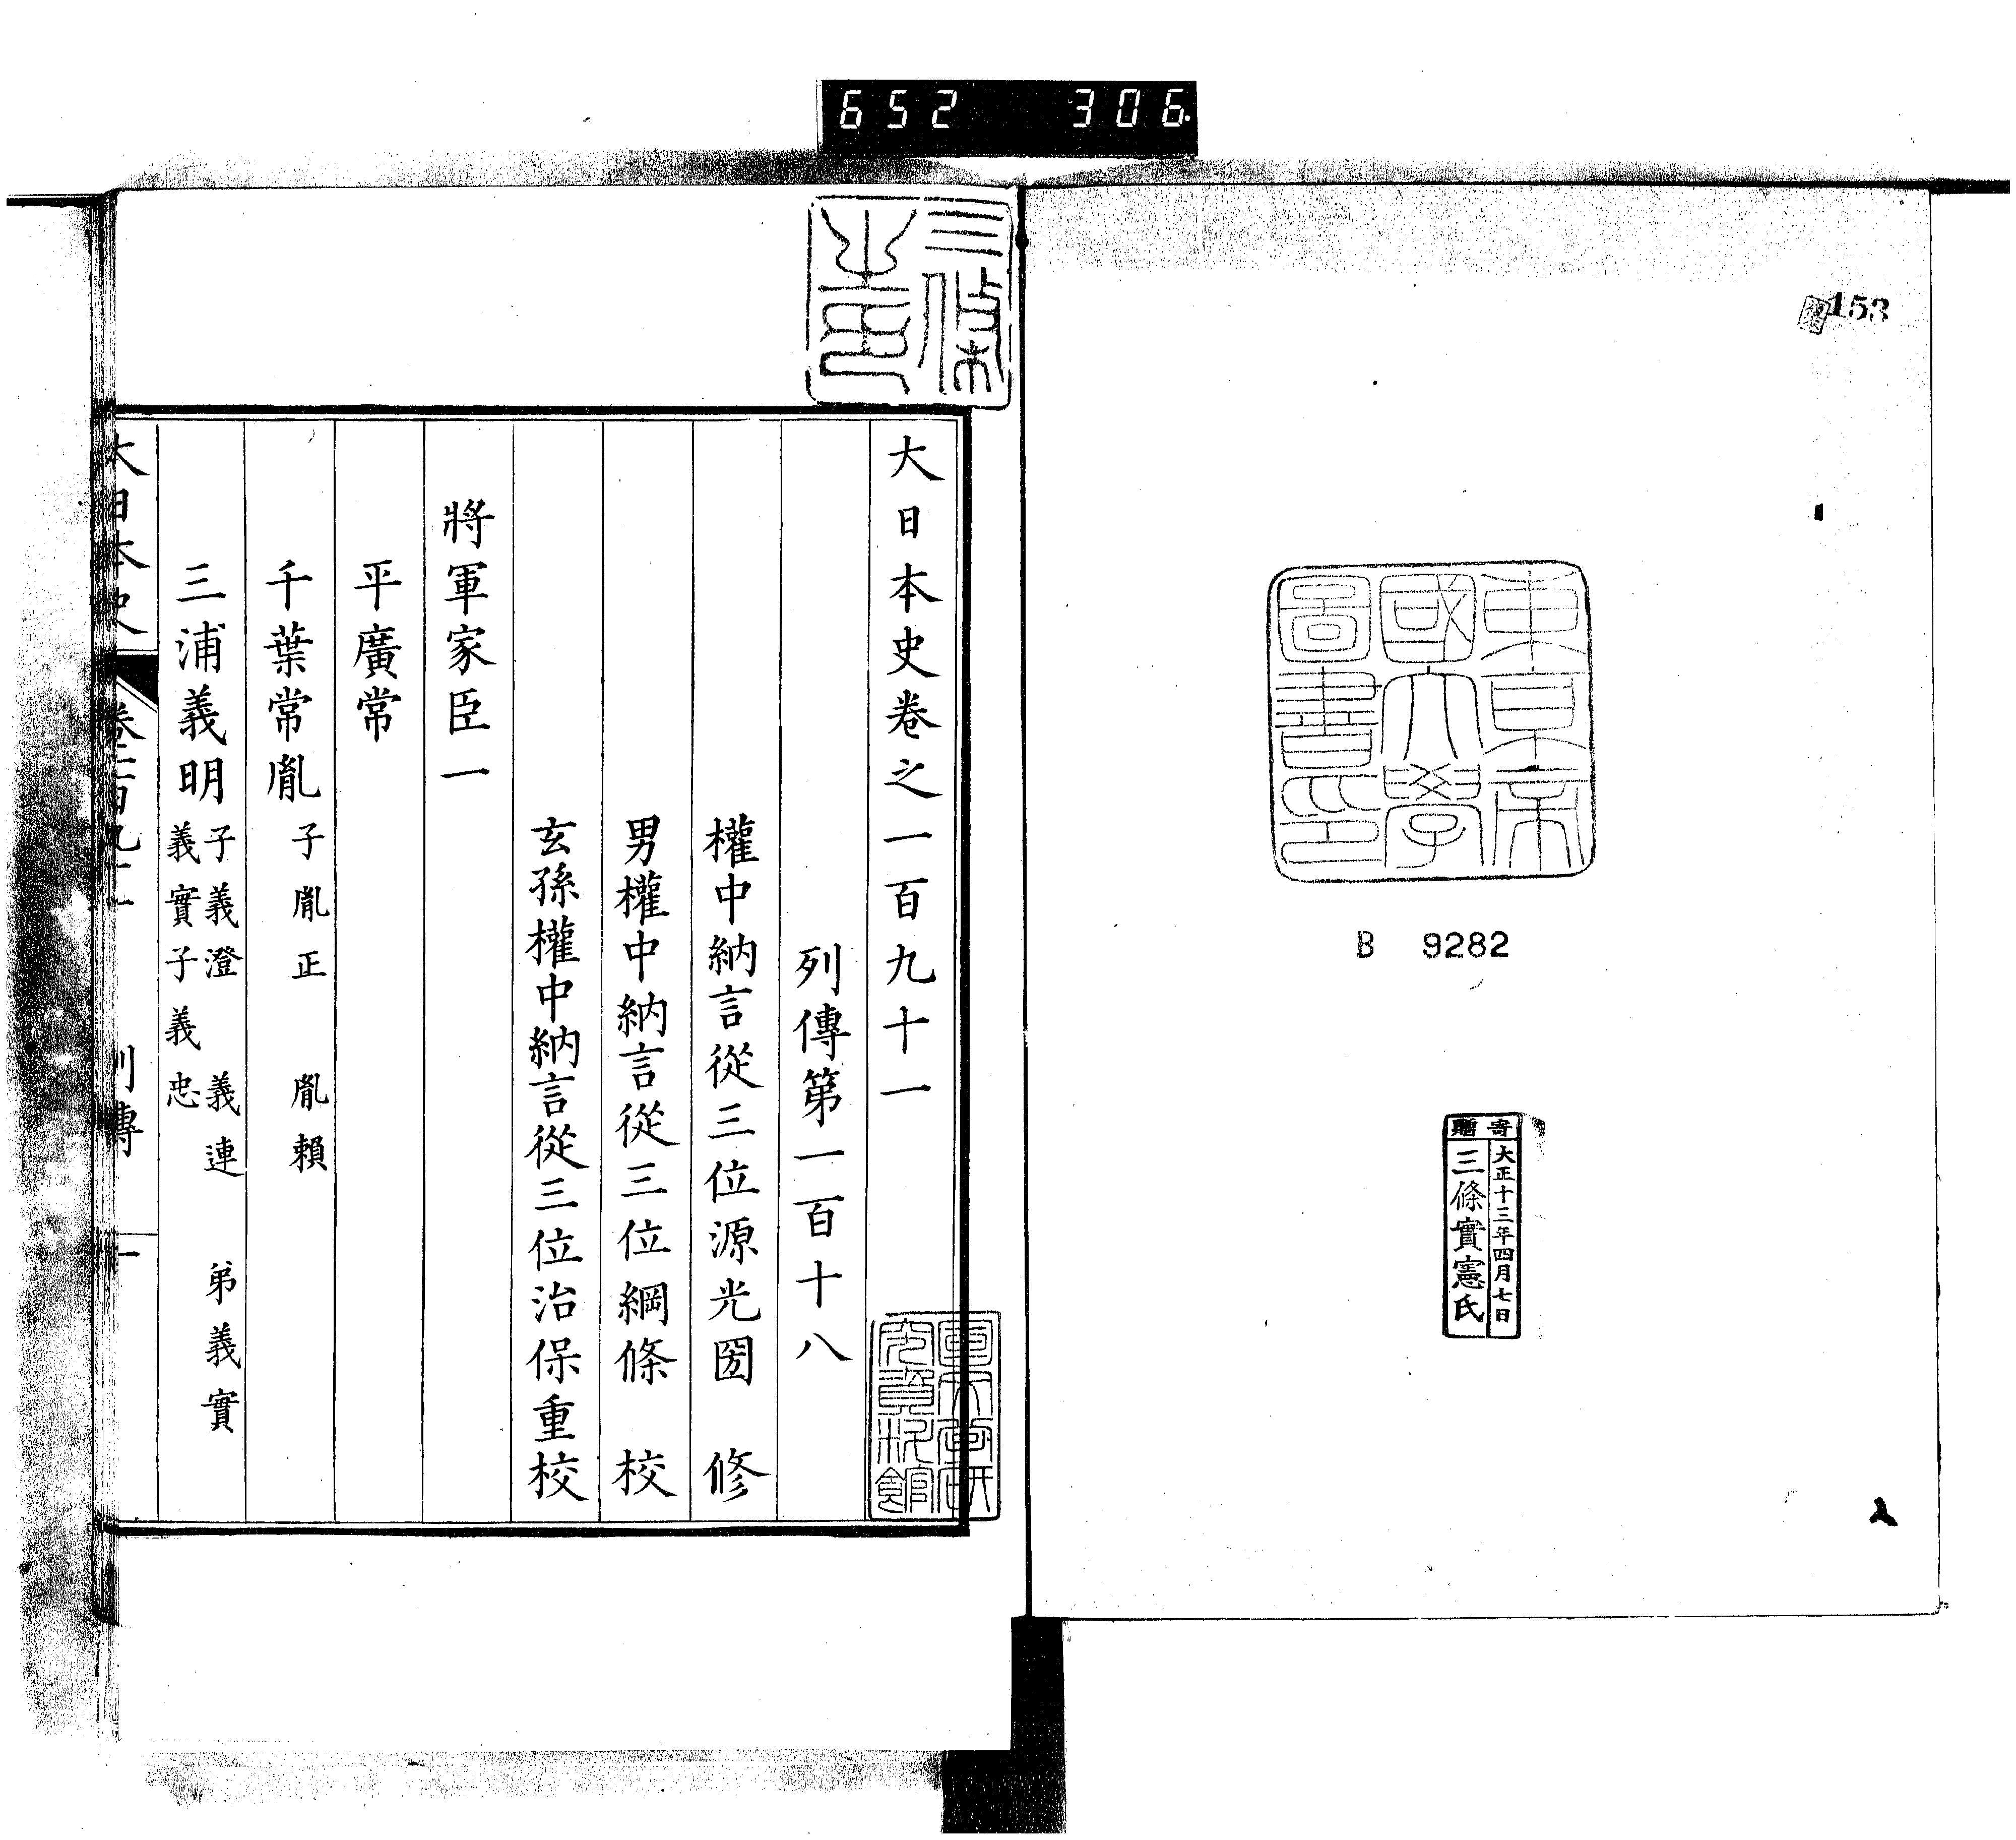 652 306
153
東京帝
國大學
圖書印
B 9282
寄贈
大正十三年四月七日
三條實憲氏
三條
大日本史卷之一百九十一
列傳第一百十八
權中納言從三位源光圀 修
男權中納言從三位綱條 校
玄孫權中納言從三位治保重校
將軍家臣一
平廣常
千葉常胤 子胤正 胤賴
三浦義明 子義澄 義連 弟義實
義實子義忠
大日本史
列傳 一